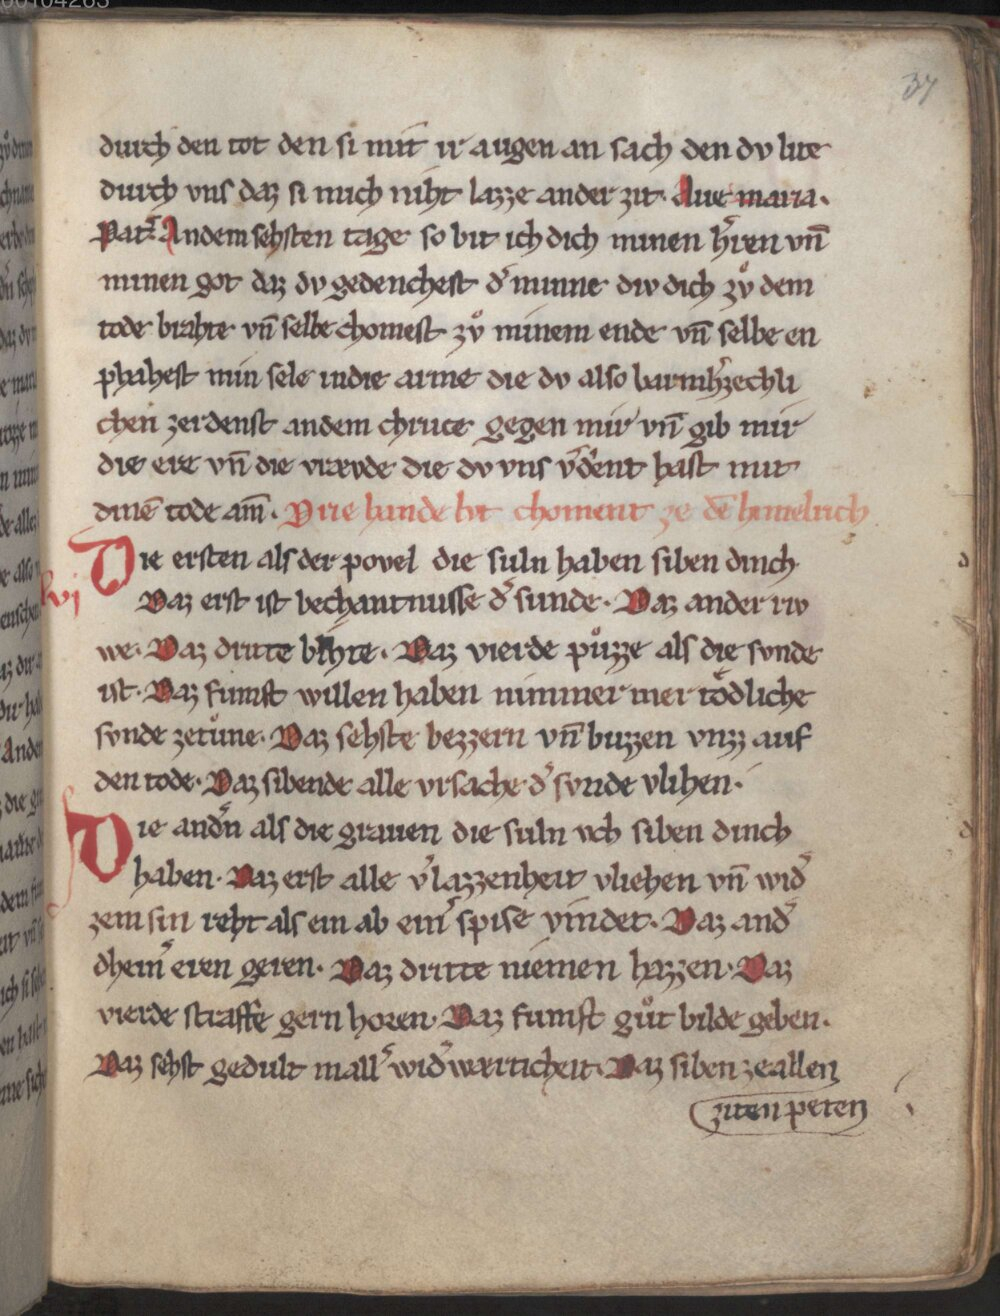 37
durch den tot den si mit ir augen an sach den dv lite
durch vns daz si mich niht lazze ander zit. Aue maria.
Pat᷑ Andem sehsten tage so bit ich dich minen h᷑ren vn̄
minen got daz dv gedenchest d᷑ minne div dich zv̊ dem
tode brahte vn̄ selbe chomest zv̊ minem ende vn̄ selbe en
phahest min sele indie arme die dv also barmh᷑zechli
chen zerdenst andem chruce gegen mir vn̄ gib mir
die ere vn̄ die vrævde die dv vns v᷑d᷑ent hast mit
dinē tode am̄. Drie hande lvt choment ze dē himelrich
Die ersten als der povel die suln haben siben dinch
xvj
Daz erst ist bechantnusse d᷑ sunde. Daz ander riv
we. Daz dritte bihte. Daz vierde pu̍zze als die svnde
ist. Daz funfst willen haben nimmer mer tödliche
svnde zetůne. Daz sehste bezzern vn̄ buzzen vnzz auf
den tode. Daz sibende alle vrsache d᷑ svnde vlihen.
Die and᷑n als die grauen die suln vch siben dinch
haben. Daz erst alle v᷑lazzenheit vliehen vn̄ wid᷑
zem sin reht als ein ab ein᷑ spise vindet. Daz and᷑
dhein᷑ eren geren. Daz dritte niemen hazzen. Daz
vierde straffe gern horen. Daz funfst gůt bilde geben.
Daz sehst gedult inall᷑ wid᷑wærticheit. Daz siben zeallen
ziten peten